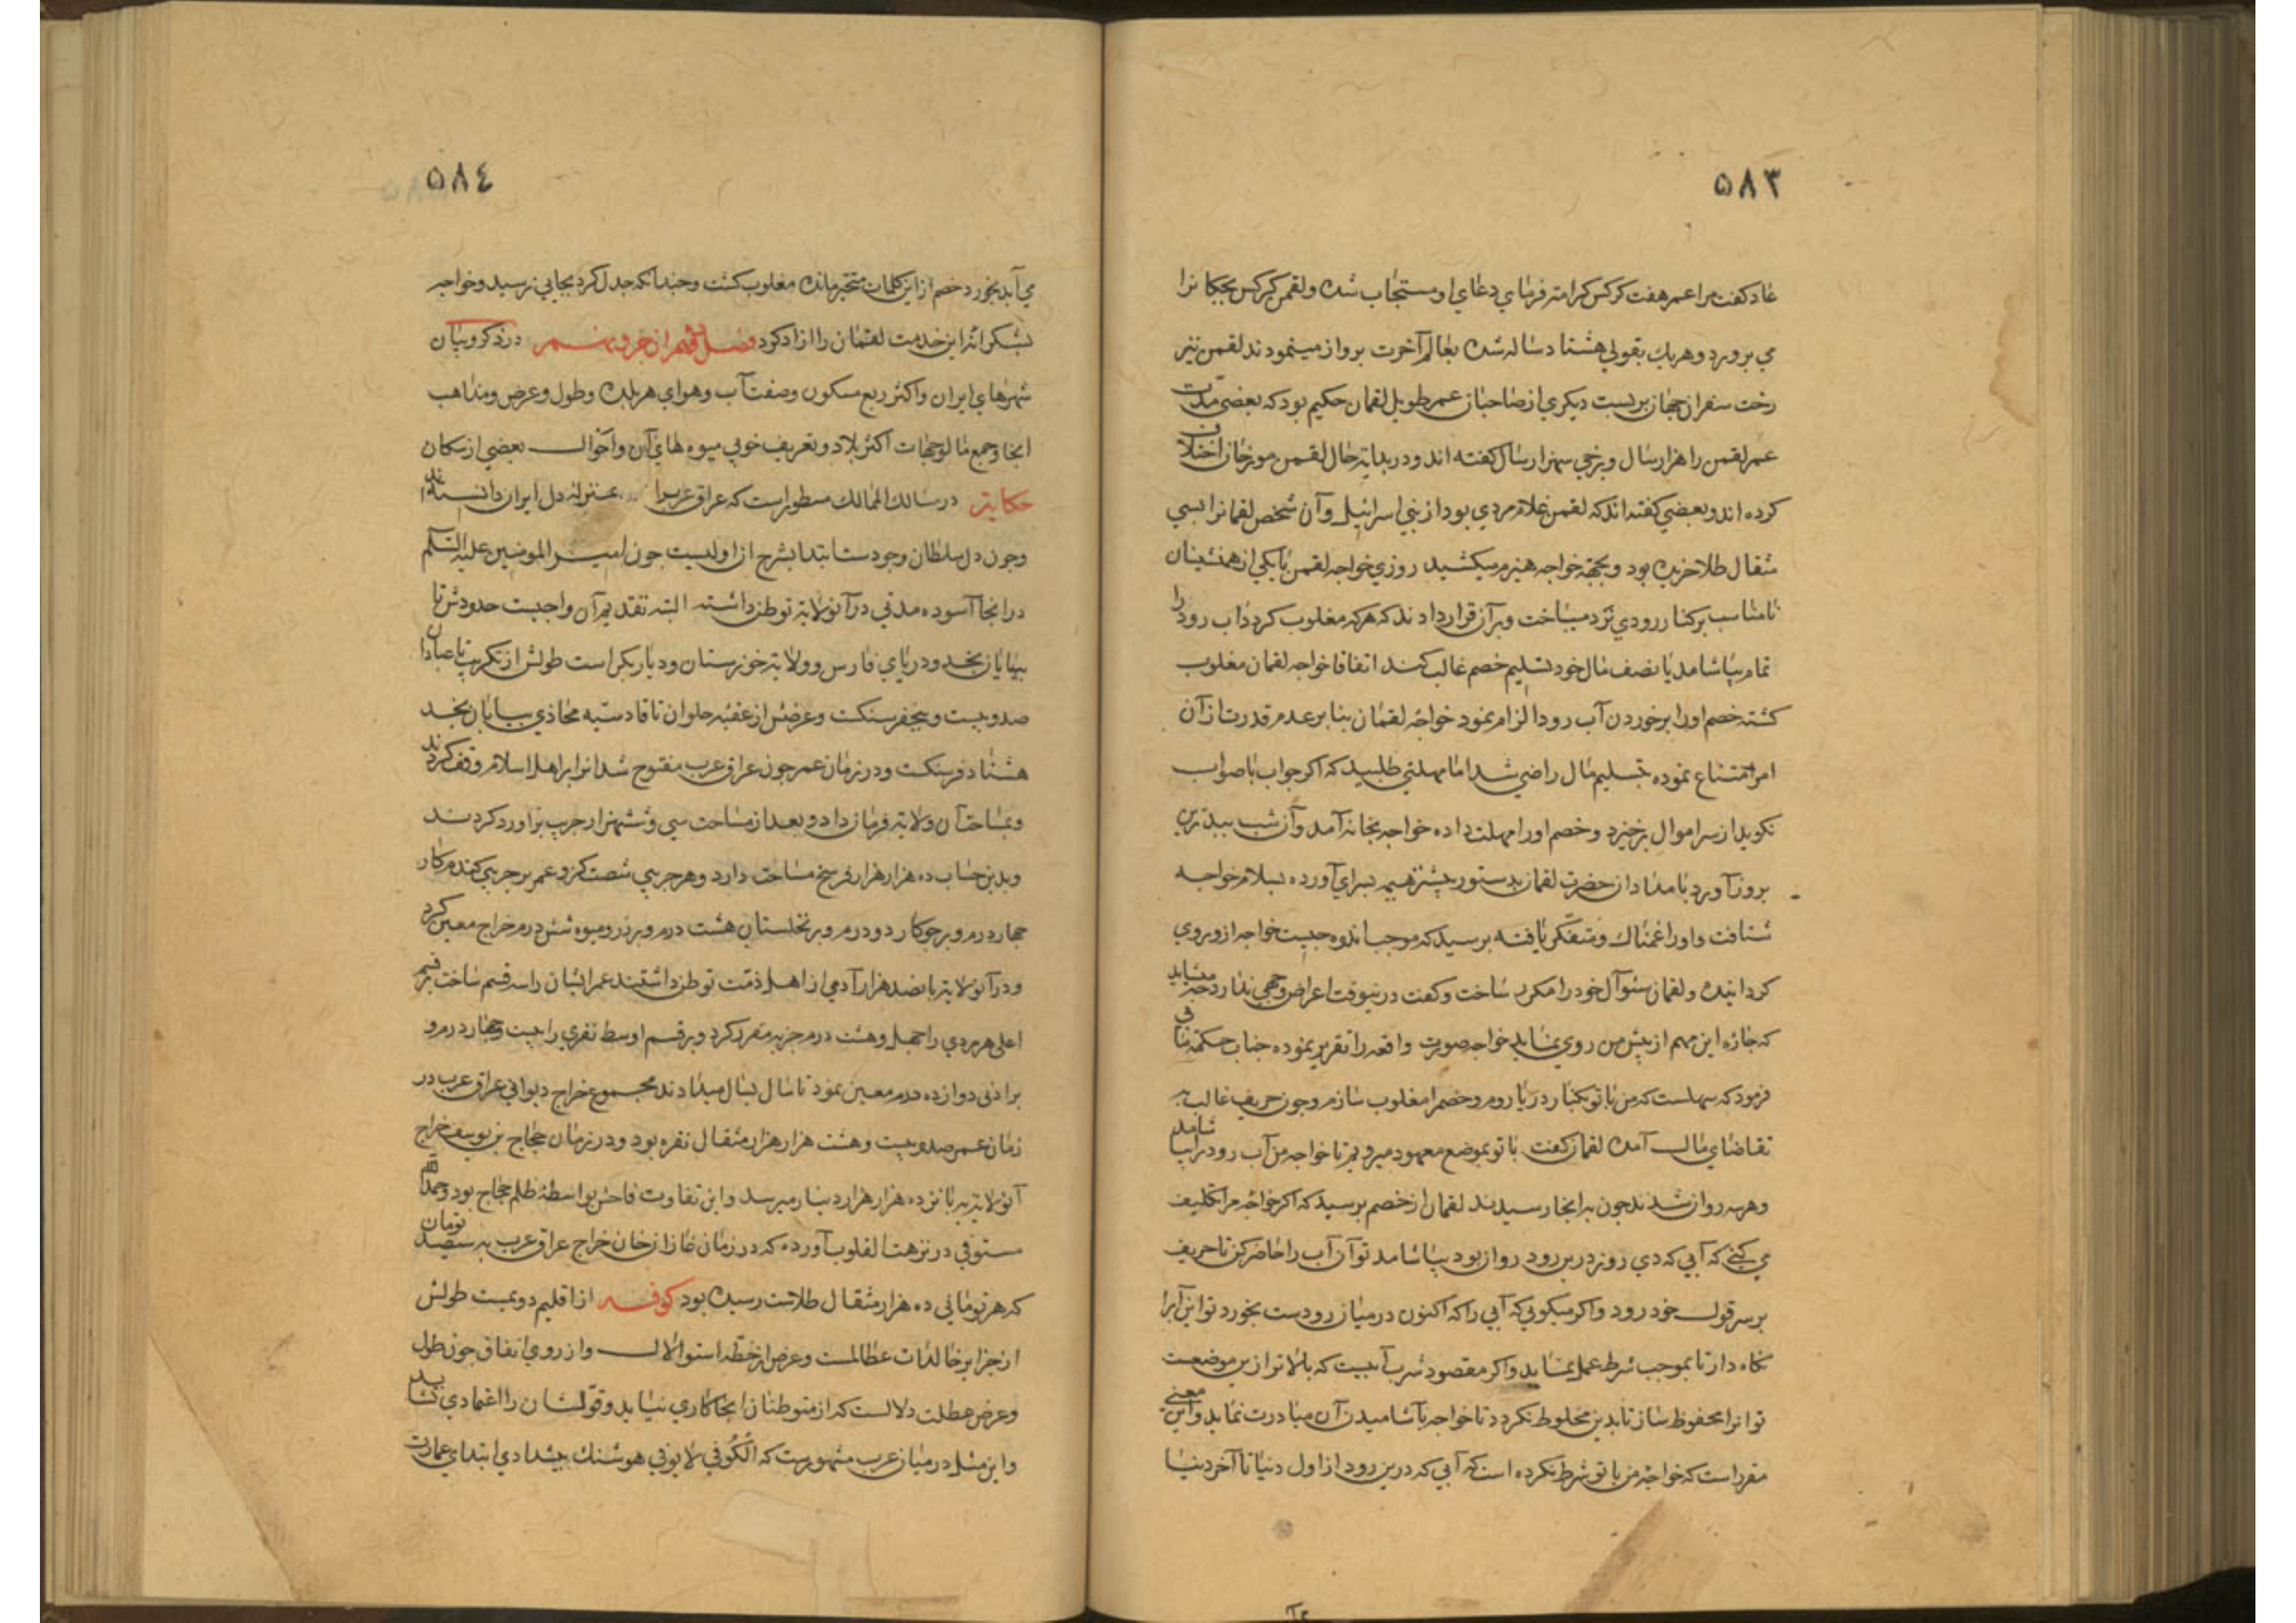 ٥٨٣
عاد گفت مرا عمر هفت کرکس کرامت فرمای دعای او مستجاب شده ولقمن کرکس بچکانرا
می پرورد وهریک بقولی هشتاد ساله شده بعالم آخرت پرواز مینمودند لقمن نیز
رخت سفر از جهان بربست دیگری از صاحبان عمر طویل لقمان حکیم بود که بعضی مدت
عمر لقمن را هزار سال وبرخی سه هزار سال گفته اند ودر بدایة حال لقمن مورخان اختلاف
کرده اند وبعضی گفته اند که لقمن غلام مردی بود از بنی اسرائیل وآن شخص لقمانرا بسی
مثقال طلا خریده بود وبجهة خواجه هیزم میکشید روزی خواجه لقمن با یکی از همنشینان
نامناسب بر کنار رودی نرد میباخت وبر آن قرار دادند که هرکه مغلوب گردد آب رود را
تمام بیاشامد یا نصف مال خود تسلیم خصم غالب کند اتفاقا خواجه لقمان مغلوب
گشته خصم اورا بر خوردن آب رود الزام نمود خواجه لقمان بنا بر عدم قدرت از آن
امر امتناع نموده بتسلیم مال راضی شد اما مهلتی طلبید که اگر جواب با صواب
نگوید از سر اموال برخیزد وخصم اورا مهلت داده خواجه بخانه آمد وآن شب ببدترین
بروز آورد بامدادان حضرت لقمان بدستور پیشتر هیمه بسرای آورده بسلام خواجه
شتافت واورا غمناک ومتفکر یافته پرسید که موجب اندوه چیست خواجه از وی روی
گردانیده ولقمان سئوال خودرا مکرر ساخت وگفت درینوقت اعراض وجهی ندارد میشاید
که چاره این مهم از پیش من روی نماید خواجه صورت واقعه را تقریر نموده جناب حکمة مآب
فرمود که سهلست که من با تو بکنار دریا روم وخصم را مغلوب سازم وچون حریف غالب به
تقاضای مال آمده لقمان گفت با تو بموضع معهود میرویم تا خواجه من آب رود را بیاشامد
وهرسه روان شدند چون بدانجا رسیدند لقمان از خصم پرسید که اگر خواجه مرا تکلیف
می کنی که آبی که دی روز درین رود روان بود بیاشامد تو آن آب را حاضر کن تا حریف
بر سر قول خود رود واگر میگویی که آبی را که اکنون در میان رودست بخورد تو این آبرا
نگاه دار تا بموجب شرط عمل نماید واگر مقصود شرب آبیست که بالاتر از این موضعست
تو انرا محفوظ ساز تا بدین مخلوط نگردد تا خواجه بآشامیدن آن مبادرت نماید واین معنی
مقرر است که خواجه من با تو شرط نکرده است که آبی که درین رود از اول دنیا تا آخر دنیا
٥٨٤
می آید بخورد خصم از این کلمات متحیر مانده مغلوب گشت وچندانکه جدل کرد بجایی نرسید وخواجه
بشکرانه این خدمت لقمان را ازاد کرد فصل نهم از حرف نهم در ذکر وبیان
شهرهای ایران واکثر ربع مسکون وصفت آب وهوای هر بلده وطول وعرض ومذاهب
انجا وجمع مالوجهات اکثر بلاد وتعریف خوبی میوه های آن واحوال بعضی از سکان
حکایة در مسالک الممالک مسطور است که عراق عربرا بمنزله دل ایران دانسته اند
وچون دل سلطان وجودست ابتدا بشرح از اولیست چون امیر المومنین علیه السلم
در انجا آسوده مدتی در آنولایة توطن داشته البته تقدیم آن واجبست حدودش تا
بیابان نجد ودریای فارس وولایة خوزستان ودیار بکر است طولش از تکریت تا عبادان
صد وبیست وپنجفرسنگست وعرضش از عقبه حلوان تا قادسیه محاذی بیابان نجد
هشتاد فرسنگست ودر زمان عمر چون عراق عرب مفتوح شد انرا بر اهل اسلام وقف کردند
وبمساحت آن ولایة فرمان داد وبعد از مساحت سی وشش هزار جریب براورد کردند
وبدین حساب ده هزار هزار فرسخ مساحت دارد وهر جریبی شصت گز وعمر بر جریبی گندم کار
چهار درم وبر جوکار دو درم وبر نخلستان هشت درم وبر زر ومیوه شش درم خراج معین کرد
ودر آنولایة پانصد هزار آدمی از اهل ذمت توطن داشتند عمر ایشان را سه قسم ساخت بر قسم
اعلی هر مردی را چهل وهشت درم جزیه مقرر کرد وبر قسم اوسط نفری را بیست وچهار درم و
بر ادنی دوازده درم معین نمود تا سال بسال میدادند مجموع خراج دیوانی عراق عرب در
زمان عمر صد وبیست وهشت هزار هزار مثقال نقره بود ودر زمان حجاج بن یوسف خراج
آنولایة به پانزده هزار هزار دینار میرسد واین تفاوت فاحش بواسطه ظلم حجاج بود وحمدالله
مستوفی در نزهت القلوب آورده که در زمان غازان خان خراج عراق عرب به سیصد تومان
که هر تومانی ده هزار مثقال طلاست رسیده بود کوفه از اقلیم دویمست طولش
از جزایر خالدات عطالست وعرض از خط استوا لال واز روی اتفاق چون طول
وعرض عطلت دلالست که از متوطنان انجا کاری نیاید وقولشان را اعتمادی نشاید
واین مثل در میان عرب مشهورست که الکوفی لا یوفی هوشنک پیشدادی ابتدای عمارت